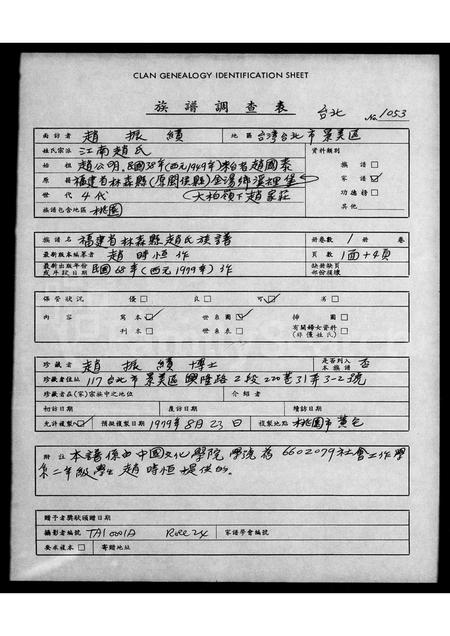 CLAN GENEALOGY IDENTIFICATION SHEET
族譜調查表 台北 No. 1053
面訪者 趙振績 地區 台灣台北市景美區
姓氏宗派 江南趙氏 資料類別
始祖 趙公明,民國38年(西元1949年)來台者趙國泰 族譜□
原籍 福建省林森縣(原閩侯縣)金湯鄉溪裡堡 家譜☑
世代 4代 (大柏嶺下趙家莊) 功德榜□
族譜包含地區 桃園 其他
族譜名 福建省林森縣趙氏族譜 冊卷數 1 冊 卷
最新版本編纂者 趙時恒作 頁數 1面+4頁
最新出版年份或手記日期 民國68年(西元1979年)作 缺冊缺頁部份損壞
保管狀況 優□ 良□ 可☑ 劣□
內容 寫本☑ 世系圖☑ 傳記□
刊本□ 世系表□ 有關婦女資料(非僅姓氏)□
珍藏者 趙振績博士 是否列入本族譜 否
珍藏者住址 117台北市景美區興隆路2段220巷31弄3-2號
珍藏者在(家)宗族中之地位 介紹者
初訪日期 復訪日期 續訪日期
允許複製☑ 預擬複製日期 1979年8月23日 複製地點 桃園市黃宅
附註 本譜係由中國文化學院學號為6602079社會工作學
系二年級學生趙時恒提供的。
贈予者獎狀頒贈日期
攝影者編號 TAI 0001A Roll 24 家譜學會編號
要求複本□ 寄贈地址